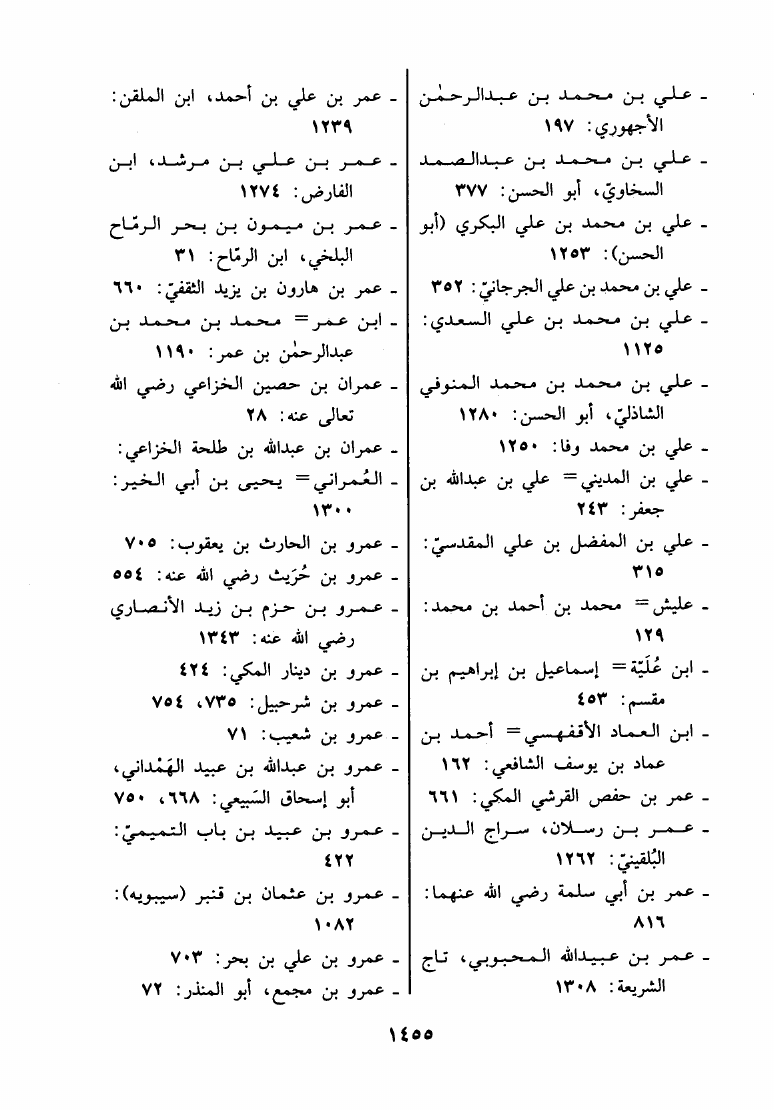 - علي بن محمد بن عبدالرحمٰن
الأجهوري: ١٩٧
- علي بن محمد بن عبدالصمد
السخاويّ، أبو الحسن: ٣٧٧
- علي بن محمد بن علي البكري (أبو
الحسن): ١٢٥٣
- علي بن محمد بن علي الجرجانيّ: ٣٥٢
- علي بن محمد بن علي السعدي:
١١٢٥
- علي بن محمد بن محمد المنوفي
الشاذليّ، أبو الحسن: ١٢٨٠
- علي بن محمد وفا: ١٢٥٠
- علي بن المديني = علي بن عبدالله بن
جعفر: ٢٤٣
- علي بن المفضل بن علي المقدسيّ:
٣١٥
- عليش = محمد بن أحمد بن محمد:
١٢٩
- ابن عُلَيّة = إسماعيل بن إبراهيم بن
مقسم: ٤٥٣
- ابن العماد الأقفهسي = أحمد بن
عماد بن يوسف الشافعي: ١٦٢
- عمر بن حفص القرشي المكي: ٦٦١
- عمر بن رسلان، سراج الدين
البُلقينيّ: ١٢٦٢
- عمر بن أبي سلمة رضي الله عنهما:
٨١٦
- عمر بن عبيدالله المحبوبي، تاج
الشريعة: ١٣٠٨
- عمر بن علي بن أحمد، ابن الملقن:
١٢٣٩
- عمر بن علي بن مرشد، ابن
الفارض: ١٢٧٤
- عمر بن ميمون بن بحر الرمّاح
البلخي، ابن الرمّاح: ٣١
- عمر بن هارون بن يزيد الثقفيّ: ٦٦٠
- ابن عمر = محمد بن محمد بن
عبدالرحمٰن بن عمر: ١١٩٠
- عمران بن حصين الخزاعي رضي الله
تعالى عنه: ٢٨
- عمران بن عبدالله بن طلحة الخزاعي:
- العُمراني = يحيى بن أبي الخير:
١٣٠٠
- عمرو بن الحارث بن يعقوب: ٧٠٥
- عمرو بن حُرَيث رضي الله عنه: ٥٥٤
- عمرو بن حزم بن زيد الأنصاري
رضي الله عنه: ١٣٤٣
- عمرو بن دينار المكي: ٤٢٤
- عمرو بن شرحبيل: ٧٣٥، ٧٥٤
- عمرو بن شعيب: ٧١
- عمرو بن عبدالله بن عبيد الهَمْداني،
أبو إسحاق السَّبيعي: ٦٦٨، ٧٥٠
- عمرو بن عبيد بن باب التميميّ:
٤٢٢
- عمرو بن عثمان بن قنبر (سيبويه):
١٠٨٢
- عمرو بن علي بن بحر: ٧٠٣
- عمرو بن مجمع، أبو المنذر: ٧٢
١٤٥٥